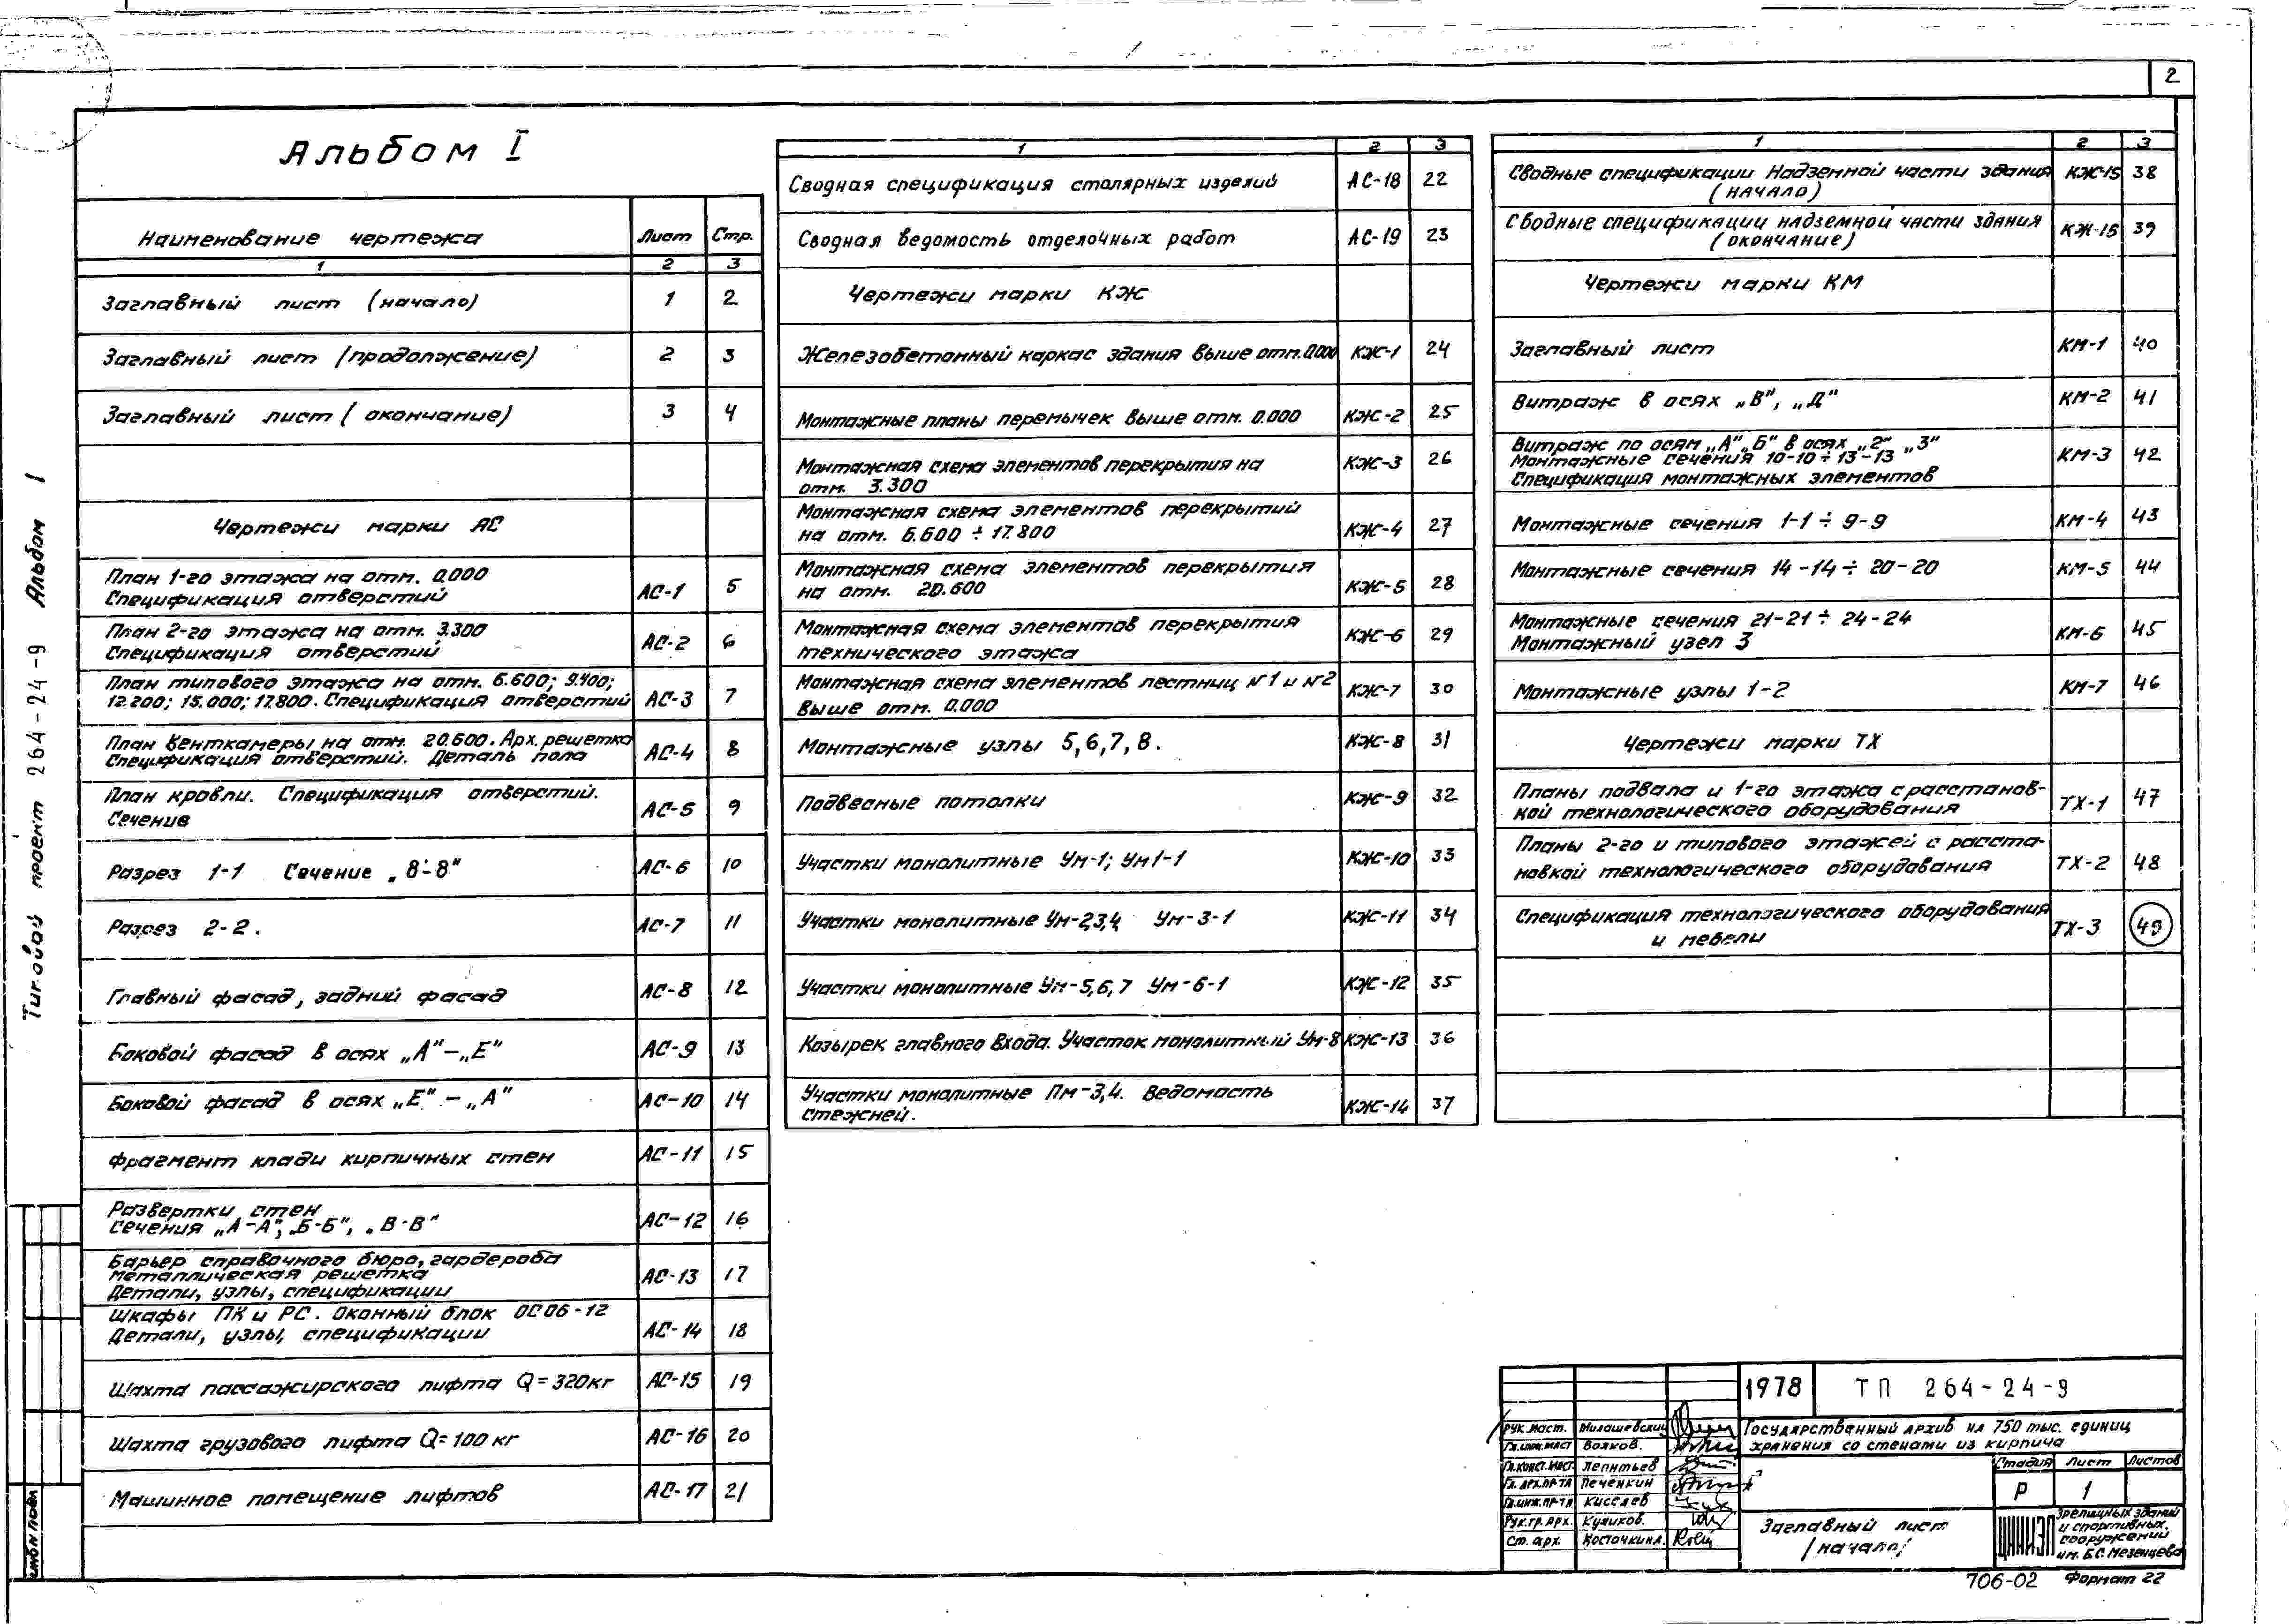 2
Альбом I
Наименование чертежа Лист Стр.
1 2 3
Заглавный лист (начало) 1 2
Заглавный лист (продолжение) 2 3
Заглавный лист (окончание) 3 4
Чертежи марки АС
План 1-го этажа на отм. 0.000
Спецификация отверстий АС-1 5
План 2-го этажа на отм. 3.300
Спецификация отверстий АС-2 6
План типового этажа на отм. 6.600; 9.400;
12.200; 15.000; 17.800. Спецификация отверстий АС-3 7
План Венткамеры на отм. 20.600. Арх. решетка
Спецификация отверстий. Деталь пола АС-4 8
План кровли. Спецификация отверстий.
Сечение АС-5 9
Разрез 1-1 Сечение „8-8" АС-6 10
Разрез 2-2. АС-7 11
Главный фасад, задний фасад АС-8 12
Боковой фасад в осях „А"-„Е" АС-9 13
Боковой фасад в осях „Е"-„А" АС-10 14
Фрагмент клади кирпичных стен АС-11 15
Развертки стен
Сечения „А-А", „Б-Б", „В-В" АС-12 16
Барьер справочного бюро, гардероба
Металлическая решетка
Детали, узлы, спецификации АС-13 17
Шкафы ПК и РС. Оконный блок ОС06-12
Детали, узлы, спецификации АС-14 18
Шахта пассажирского лифта Q=320кг АС-15 19
Шахта грузового лифта Q=100кг АС-16 20
Машинное помещение лифтов АС-17 21
1 2 3
Сводная спецификация столярных изделий АС-18 22
Сводная ведомость отделочных работ АС-19 23
Чертежи марки КЖ
Железобетонный каркас здания выше отм. 0.000 КЖ-1 24
Монтажные планы перемычек выше отм. 0.000 КЖ-2 25
Монтажная схема элементов перекрытия на
отм. 3.300 КЖ-3 26
Монтажная схема элементов перекрытий
на отм. 6.600 ÷ 17.800 КЖ-4 27
Монтажная схема элементов перекрытия
на отм. 20.600 КЖ-5 28
Монтажная схема элементов перекрытия
технического этажа КЖ-6 29
Монтажная схема элементов лестниц №1 и №2
выше отм. 0.000 КЖ-7 30
Монтажные узлы 5,6,7,8. КЖ-8 31
Подвесные потолки КЖ-9 32
Участки монолитные Ум-1; Ум1-1 КЖ-10 33
Участки монолитные Ум-2,3,4 Ум-3-1 КЖ-11 34
Участки монолитные Ум-5,6,7 Ум-6-1 КЖ-12 35
Козырек главного входа. Участок монолитный Ум-8 КЖ-13 36
Участки монолитные Пм-3,4. Ведомость
стежней. КЖ-14 37
1 2 3
Сводные спецификации Надземной части здания
(начало) КЖ-15 38
Сводные спецификации надземной части здания
(окончание) КЖ-16 39
Чертежи марки КМ
Заглавный лист КМ-1 40
Витраж в осях „В", „Д" КМ-2 41
Витраж по осям „А" „Б" в осях „2" „3"
Монтажные сечения 10-10 ÷ 13-13
Спецификация монтажных элементов КМ-3 42
Монтажные сечения 1-1 ÷ 9-9 КМ-4 43
Монтажные сечения 14-14 ÷ 20-20 КМ-5 44
Монтажные сечения 21-21 ÷ 24-24
Монтажный узел 3 КМ-6 45
Монтажные узлы 1-2 КМ-7 46
Чертежи марки ТХ
Планы подвала и 1-го этажа с расстанов-
кой технологического оборудования ТХ-1 47
Планы 2-го и типового этажей с расста-
новкой технологического оборудования ТХ-2 48
Спецификация технологического оборудования
и мебели ТХ-3 49
Типовой проект 264-24-9 Альбом I
1978 ТП 264-24-9
Рук.маст. Милашевский
Гл.инж.маст Волков.
Гл.конст.маст. Леонтьев
Гл.арх.пр-та Печенкин
Гл.инж.пр-та Киселев
Рук.гр.арх. Куликов.
Ст.арх. Косточкина.
Государственный архив на 750 тыс. единиц
хранения со стенами из кирпича
Стадия Лист Листов
Р 1
Заглавный лист
(начало)
ЦНИИЭП
зрелищных зданий
и спортивных
сооружений
им. Б.С. Мезенцева
706-02 Формат 22